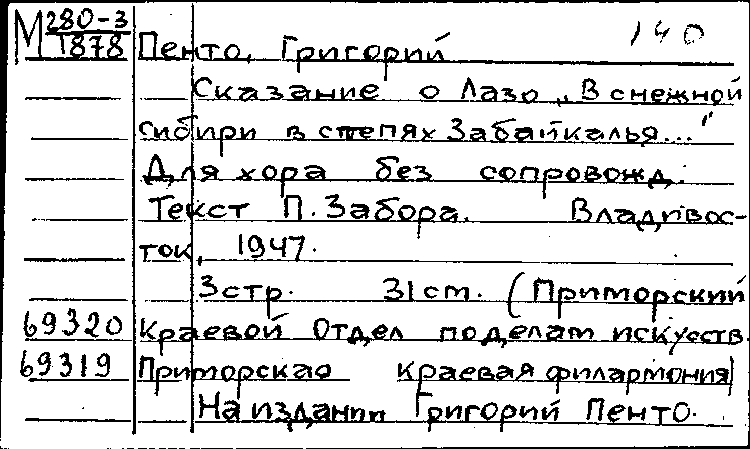 М 280-3
1878
140
Пенто, Григорий
Сказание о Лазо „В снежной
сибири в степях Забайкалья..."
Для хора без сопровожд.
Текст П. Забора. Владивос-
ток, 1947.
3 стр. 31 см. (Приморский
69320 Краевой Отдел по делам искусств.
69319 Приморская краевая филармония)
На издании Григорий Пенто.